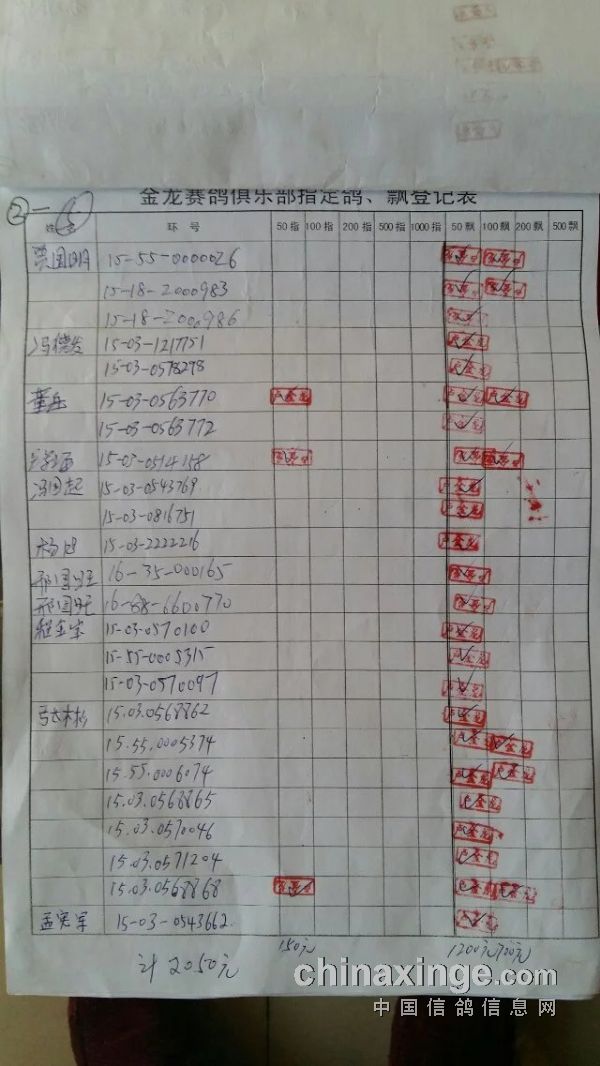 金龙赛鸽俱乐部指定鸽、飘登记表
②—⑤
姓名 环 号 50指 100指 200指 500指 1000指 50飘 100飘 200飘 500飘
国明 15-55-0000026
15-18-2000983
15-18-2000986
冯德发 15-03-1217751
15-03-0578298
董岳 15-03-0563770
15-03-0563772
15-03-0514158
冯国起 15-03-0543769
15-03-0816751
杨 15-03-2222216
邢国旺 16-35-000165
邢国旺 16-88-6600770
程金宝 15-03-0570100
15-55-0005315
15-03-0570097
马杉 15.03.0568862
15.55.0005374
15.55.0006074
15.03.0568865
15.03.0570046
15.03.0571204
15.03.0568868
孟宪军 15-03-0543662
计 2050元 150元 1200元 700元
chinaxinge.com
中国信鸽信息网